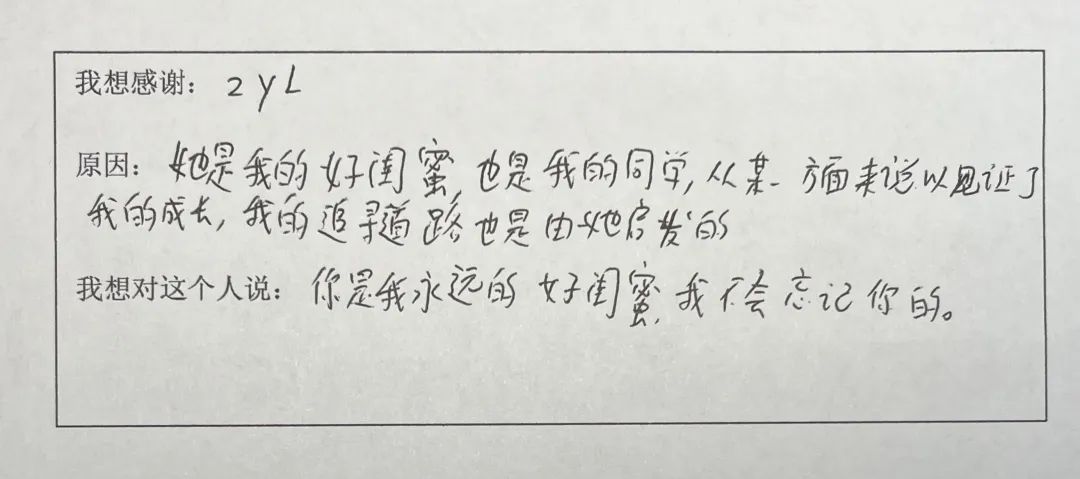 我想感谢：zyL
原因：她是我的好闺蜜,也是我的同学,从某一方面来说以见证了
我的成长,我的追寻道路也是由她启发的
我想对这个人说：你是我永远的好闺蜜,我不会忘记你的。